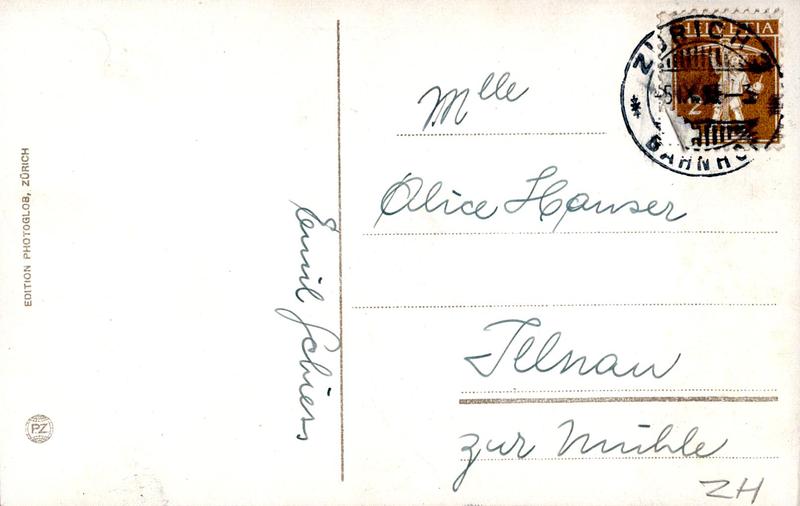 EDITION PHOTOGLOB, ZÜRICH
PZ
Emil Schiess
HELVETIA
2
ZÜRICH
BAHNHOF
Mlle
Alice Hauser
Illnau
zur Mühle
ZH